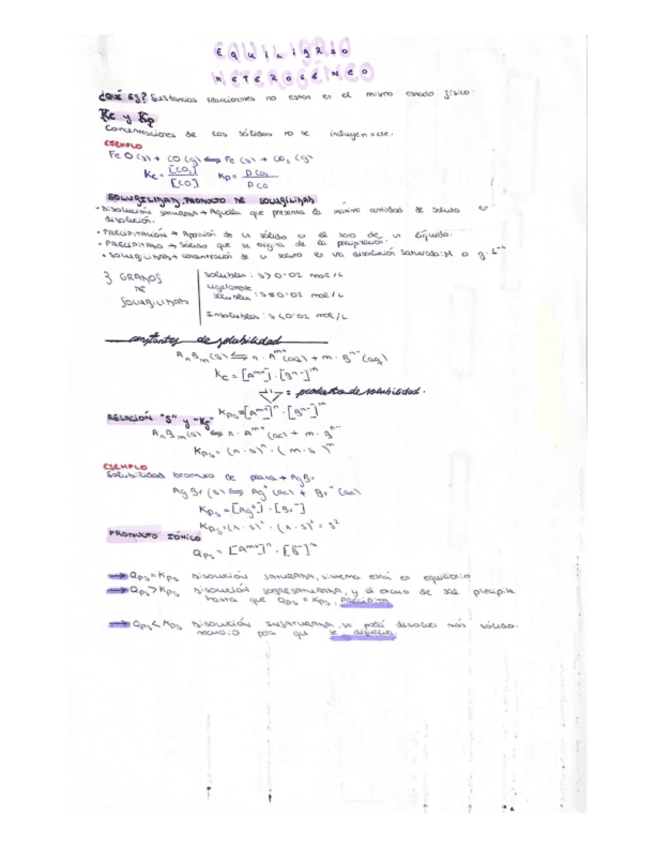 EQUILIBRIO
HETEROGÉNEO
¿Qué es? Sustancias reaccionantes no están en el mismo estado físico.
Kc y Kp
Concentraciones de los sólidos no se incluyen
EJEMPLO
FeO(s) + CO(g) ⇌ Fe(s) + CO₂(g)
Kc = [CO₂]/[CO] Kp = PCO₂/PCO
SOLUBILIDAD, PRODUCTO DE SOLUBILIDAD
• DISOLUCIÓN SATURADA → Aquella que presenta la máxima cantidad de soluto en
disolución.
• PRECIPITACIÓN → Aparición de un sólido en el seno de un líquido.
• PRECIPITADO → Sólido que se origina de la precipitación.
• SOLUBILIDAD → concentración de un soluto en una disolución saturada: M o g·L⁻¹
3 GRADOS DE SOLUBILIDAD
Solubles: s > 0'02 mol/L
Ligeramente
solubles: s = 0'02 mol/L
Insolubles: s < 0'02 mol/L
constantes de solubilidad
AnBm(s) ⇌ n·A^m+(ac) + m·B^n-(ac)
Kc = [A^m+]^n · [B^n-]^m
= producto de solubilidad.
Kps = [A^m+]^n · [B^n-]^m
RELACIÓN "S" y "Ks"
AnBm(s) ⇌ n·A^m+(ac) + m·B^n-
Kps = (n·s)^n · (m·s)^m
EJEMPLO
Solubilidad bromuro de plata → AgBr
AgBr(s) ⇌ Ag⁺(ac) + Br⁻(ac)
Kps = [Ag⁺]·[Br⁻]
Kps = (n·s)¹ · (n·s)¹ = s²
PRODUCTO IÓNICO
Qps = [A^m+]^n · [B^n-]^m
→ Qps = Kps DISOLUCIÓN SATURADA, sistema está en equilibrio
→ Qps > Kps DISOLUCIÓN SOBRESATURADA, y el exceso de sal precipita
hasta que Qps = Kps, PRECIPITA
→ Qps < Kps DISOLUCIÓN INSATURADA, se podrá disolver más sólido.
para que se disuelva.